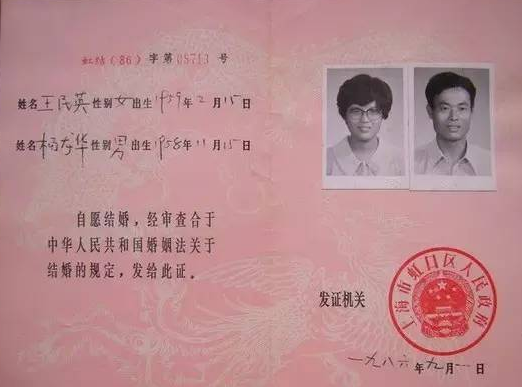 虹结(86)字第08713号
姓名王民英性别女出生1959年2月15日
姓名杨存华性别男出生1958年11月15日
自愿结婚,经审查合于
中华人民共和国婚姻法关于
结婚的规定,发给此证。
发证机关
上海市虹口区人民政府
一九八六年九月一日